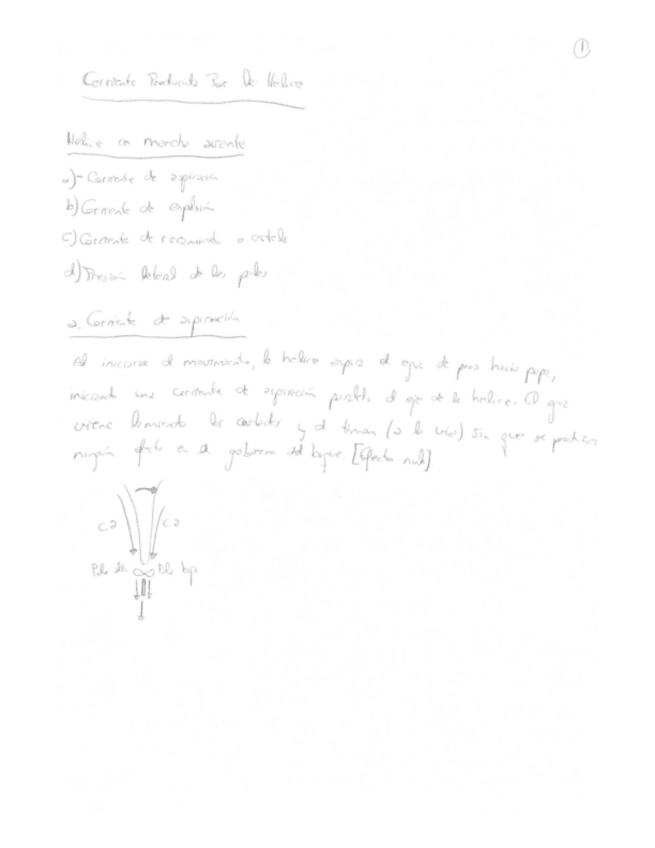 1
Corriente Producida Por la Helice
Helice en marcha avante
a)- Corriente de aspiración
b) Corriente de expulsión
c) Corriente de rozamiento o estela
d) Presión lateral de las palas
a. Corriente de aspiración
Al iniciarse el movimiento, la helice aspira el agua de proa hacia popa,
iniciando una corriente de aspiración paralela al eje de la helice. El agua
viene lamiendo los costados y el timón (a la vía) sin que se produzca
ningún efecto en el gobierno del buque. [Efecto nulo]
Ca Ca
Pala alta Pala baja